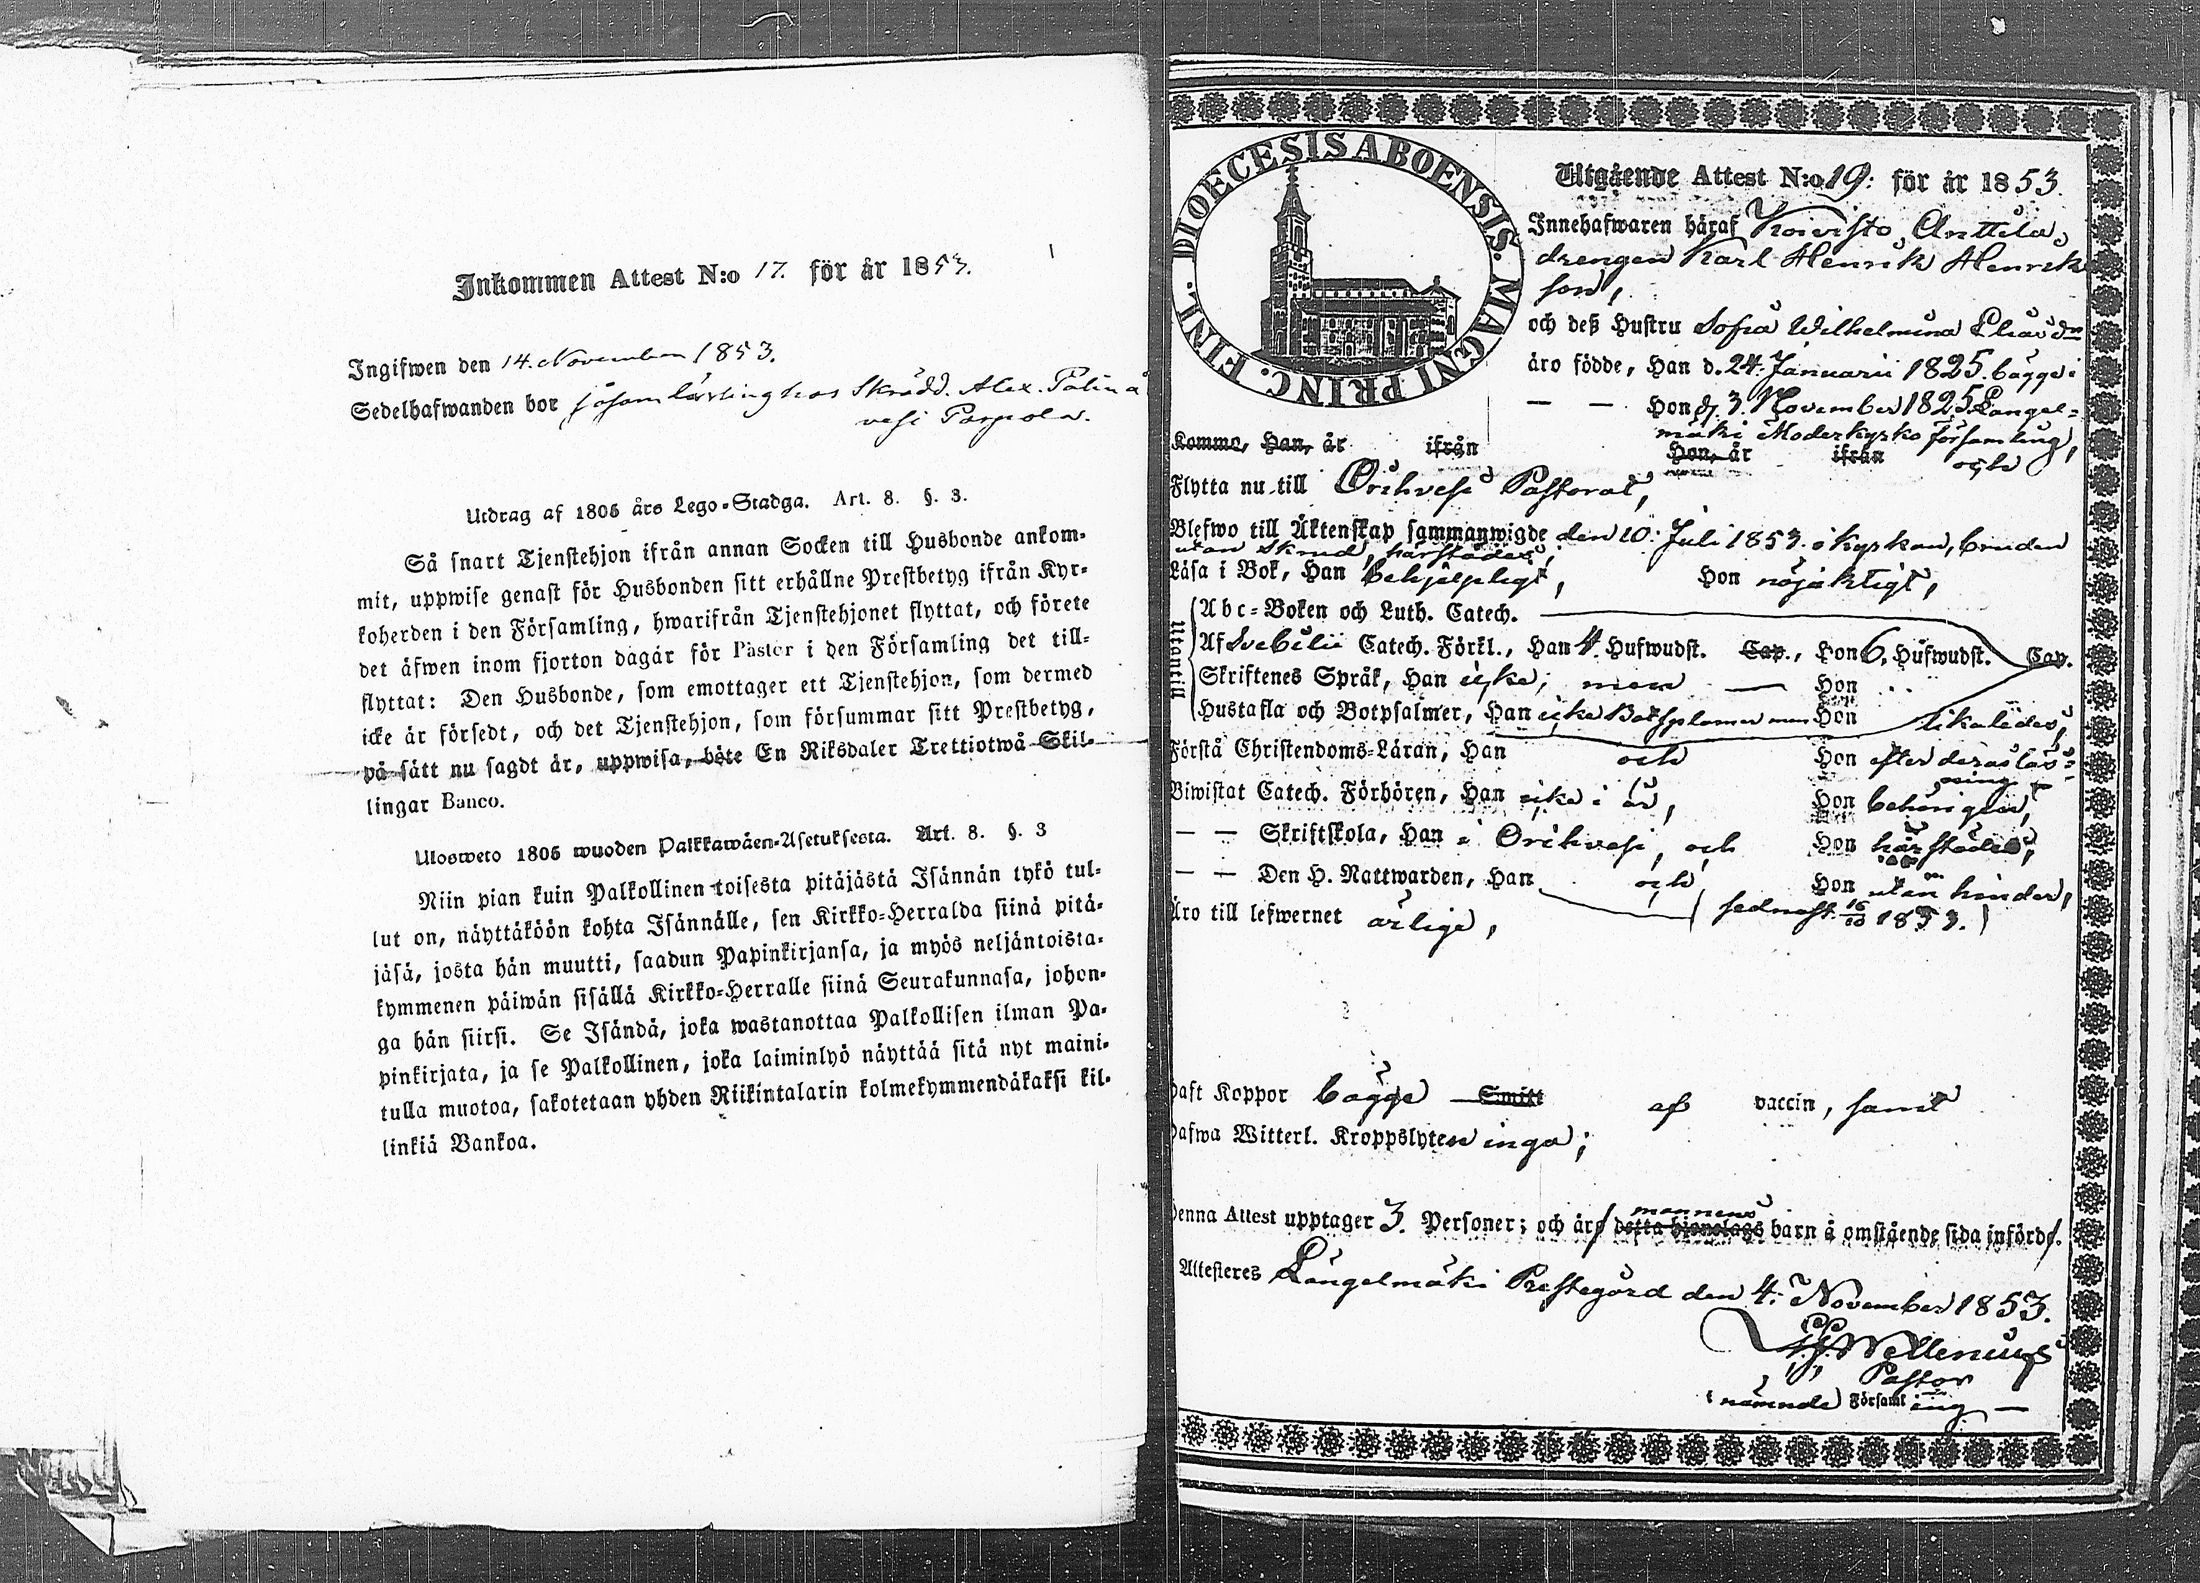 Inkommen Attest N:o 17. för år 1853.
Ingifwen den 14. November 1853.
Sedelhafwanden bor såsom lärling hos Skrädd. Alex. Palin å
vesi Parpola.
Utdrag af 1805 års Lego-Stadga. Art. 8. §. 3.
Så snart Tjenstehjon ifrån annan Socken till Husbonde ankom-
mit, uppwise genast för Husbonden sitt erhållne Prestbetyg ifrån Kyr-
koherden i den Församling, hwarifrån Tjenstehjonet flyttat, och förete
det äfwen inom fjorton dagar för Pastor i den Församling det till-
flyttat: Den Husbonde, som emottager ett Tjenstehjon, som dermed
icke är försedt, och det Tjenstehjon, som försummar sitt Prestbetyg,
på sätt nu sagdt är, uppwisa, böte En Riksdaler Trettiotwå Skil-
lingar Banco.
Ulosweto 1805 wuoden Palkkawäen-Asetuksesta. Art. 8. §. 3
Niin pian kuin Palkollinen toisesta pitäjästä Isännän tykö tul-
lut on, näyttäköön kohta Isännälle, sen Kirkko-Herralda siinä pitä-
jäsä, josta hän muutti, saadun Papinkirjansa, ja myös neljäntoista-
kymmenen päiwän sisällä Kirkko-Herralle siinä Seurakunnasa, johon-
ga hän siirsi. Se Isändä, joka wastanottaa Palkollisen ilman Pa-
pinkirjata, ja se Palkollinen, joka laiminlyö näyttää sitä nyt maini-
tulla muotoa, sakotetaan yhden Riikintalarin kolmekymmendäkaksi kil-
linkiä Bankoa.
DIOECESIS ABOENSIS. MAGNI PRINC. FINL.
Utgående Attest N:o 19: för år 1853.
Innehafwaren häraf Koivisto Anttila
drengen Karl Henrik Henriks
son,
och deß Hustru Sofia Wilhelmina Eliaedr
äro födde, Han d. 24. Januarii 1825. bägge i
— — Hon d. 3. November 1825 Längel-
mäki Moderkyrko församling,
Komme, Han, år ifrån Hon, år ifrån och
Flytta nu till Orihvesi Pastorat,
Blefwo till Äktenskap sammanwigde den 10. Juli 1853. i kyrkan, bruden
utan skrud, härstädes;
Läsa i Bok, Han behjelpligt, Hon nöjaktigt,
Utantill
Abc-Boken och Luth. Catech.
Af Svebilii Catech. Förkl., Han 4. Hufwudst. Cap., Hon 6. Hufwudst. Cap.
Skriftenes Språk, Han icke; men — Hon
Hustafla och Botpsalmer, Han icke Botpsalmer men Hon likaledes,
Förstå Christendoms-Läran, Han och Hon efter deras läs-
ning
Biwistat Catech. Förhören, Han icke i år, Hon behörigen,
— — Skriftskola, Han i Orihvesi, och Hon härstädes,
— — Den H. Nattwarden, Han och Hon utan hinder,
(sednast 16/10 1853.)
Äro till lefwernet ärlige,
Haft Koppor bägge Smitt af vaccin, samt
Hafwa Witterl. Kroppslyten inga;
mannens
Denna Attest upptager 3. Personer; och äro detta hjonelags barn å omstående sida införde.
Attesteres Längelmäki Prestegård den 4. November 1853.
Wallenius
Pastor
nämnde Församling —